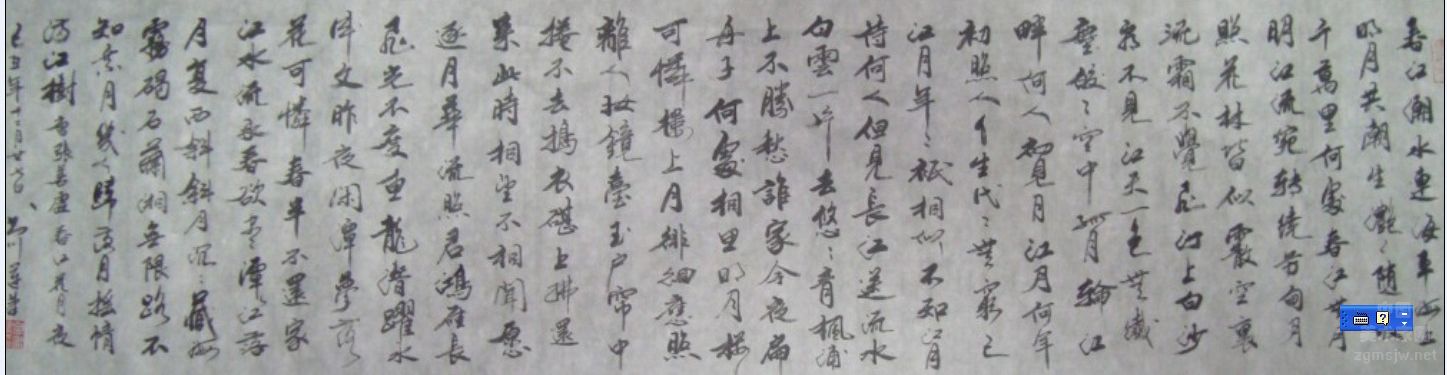 春江潮水連海平海上
明月共潮生灩〻隨
千萬里何處春江無月
明江流宛轉繞芳甸月
照花林皆似霰空裏
流霜不覺飛汀上白沙
看不見江天一色無纖
塵皎〻空中孤月輪江
畔何人初見月江月何年
初照人人生代〻無窮已
江月年〻祇相似不知江月
待何人但見長江送流水
白雲一片去悠〻青楓浦
上不勝愁誰家今夜扁
舟子何處相思明月樓
可憐樓上月徘徊應照
離人妝鏡臺玉戶簾中
捲不去搗衣砧上拂還
來此時相望不相聞願
逐月華流照君鴻雁長
飛光不度魚龍潛躍水
成文昨夜閑潭夢落
花可憐春半不還家
江水流春欲盡潭江落
月復西斜斜月沉〻藏海
霧碣石瀟湘無限路不
知乘月幾人歸落月搖情
滿江樹 唐張若虛春江花月夜
己丑年十二月廿六日
zgmsjw.net